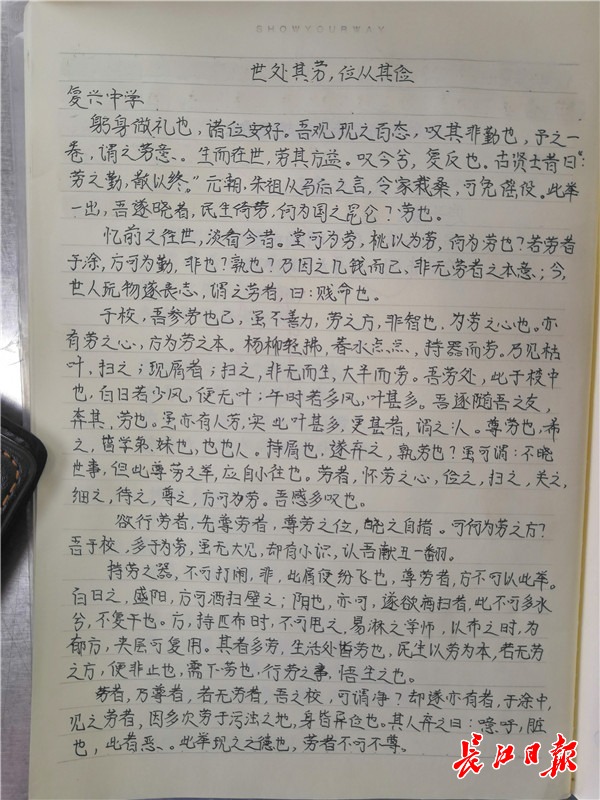 SHOWYOURWAY
世处其劳,位从其俭
复兴中学
躬身做礼也,诸位安好。吾观现之百态,叹其非勤也,予之一
卷,谓之劳意、。生而在世,劳其方益。叹今兮,复反也。古贤士昔曰“:
劳之勤,献以终。”元朝,朱祖从马后之言,令家栽桑,可免徭役。此举
一出,吾遂晓者,民生倚劳,何为国之昆仑?劳也。
忆前之往世,淡看今昔。堂可为劳,桃以为劳,何为劳也?若劳者
于涂,方可为勤,非也?孰也?乃因之几钱而已、非无劳者之本意;今,
世人玩物遂丧志,谓之劳者,曰:贱命也。
于校,吾参劳也已,虽不善力,劳之方,非智也,为劳之心也。亦
有劳之心,方为劳之本。杨柳轻拂,春水点点,持器而劳。乃见枯
叶,扫之;现屑者;扫之,非无而生,大半而劳。吾劳处,此于校中
也,白日若少风,便无叶;午时若多风,叶甚多。吾逐随吾之友,
奔其,劳也。虽亦有人劳,实此叶甚多,更甚者,谓之:人。尊劳也,希
之,皆学弟、妹也,也也人。持屑也,遂弃之,孰劳也?虽可谓:不晓
世事,但此尊劳之举,应自小往也。劳者,怀劳之心,俭之,扫之,关之,
细之,待之,尊之,方可为劳。吾感多叹也。
欲行劳者,先尊劳者,尊劳之位,晓之自措。可何为劳之方?
吾于校,多于为劳,虽无大见,却有小识,认吾献丑一翻。
持劳之器,不可打闹,非,此屑便纷飞也,尊劳者,方不可以此举。
白日之,盛阳,方可洒扫壁之;阴也,亦可,遂欲病扫者,此不可多水
兮,不复干也。方,持匹布时,不可甩之,易淋之学师,以布之时,为
郁方,夹层可复用。其者多劳,生活处皆劳也,民生以劳为本,若无劳
之方,便非止也,需下劳也,行劳之事,悟生之也。
劳者,乃尊者,若无劳者,吾之校,可谓净?却遂亦有者,于涂中,
见之劳者,因多次劳于污浊之地,身皆异色也。其人弃之曰:噫吁,脏
也,此者恶、。此举现之之德也,劳者不可不尊。
长江日报